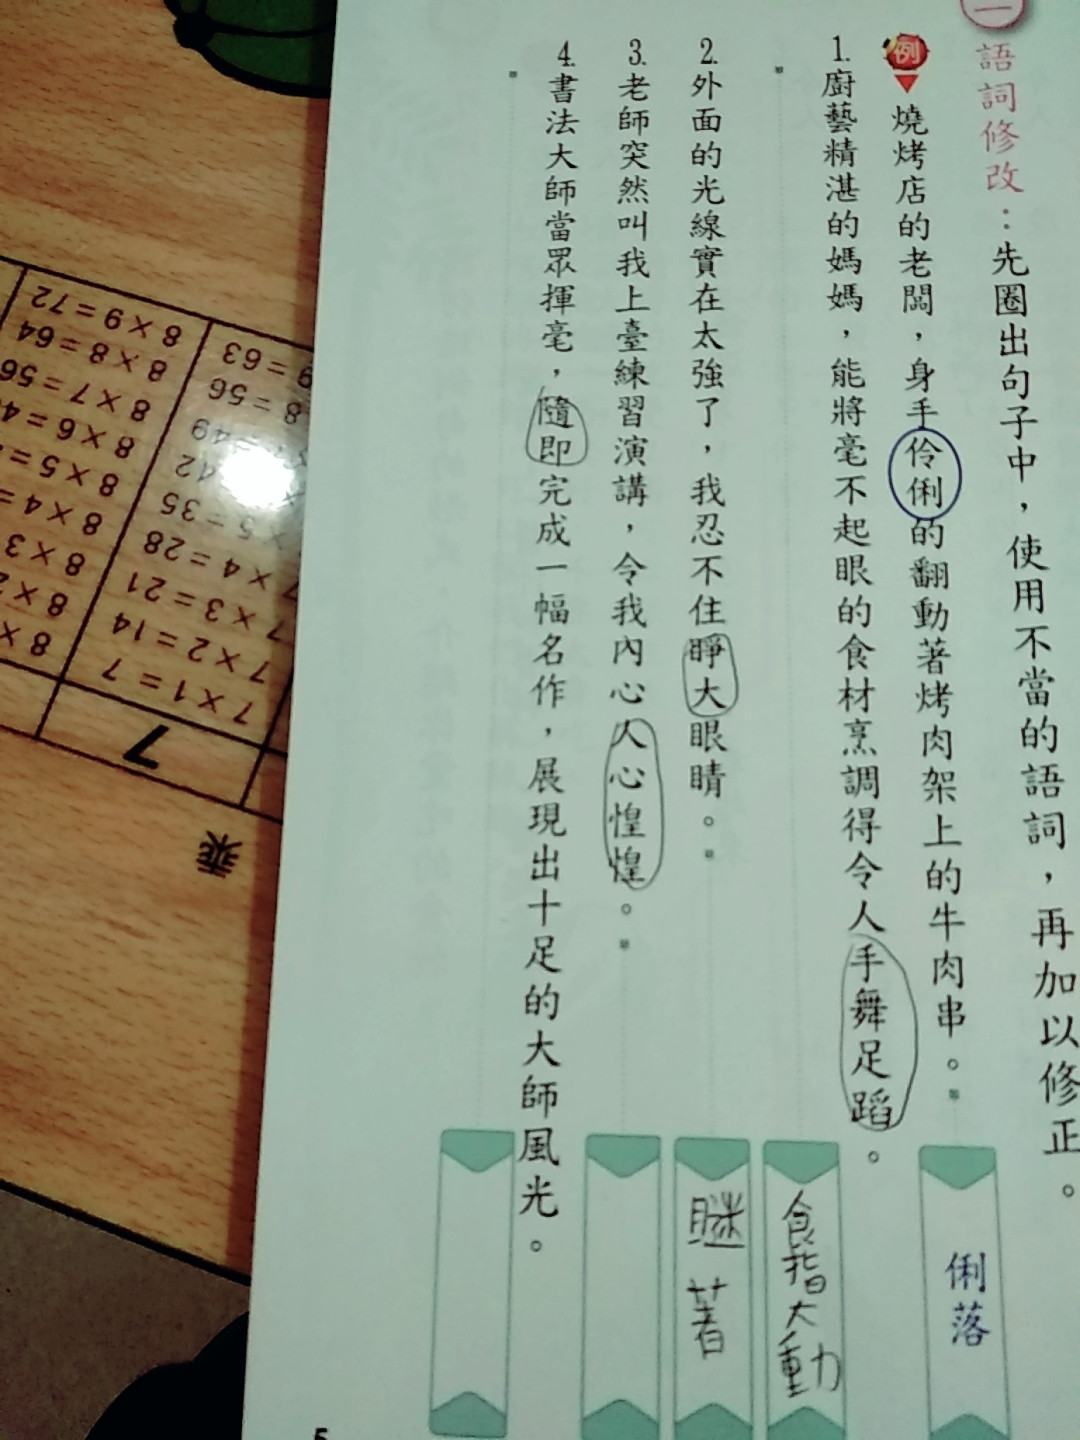 一
語詞修改：先圈出句子中，使用不當的語詞，再加以修正。
例
燒烤店的老闆，身手伶俐的翻動著烤肉架上的牛肉串。
俐落
1.廚藝精湛的媽媽，能將毫不起眼的食材烹調得令人手舞足蹈。
食指大動
2.外面的光線實在太強了，我忍不住睜大眼睛。
瞇著
3.老師突然叫我上臺練習演講，令我內心人心惶惶。
4.書法大師當眾揮毫，隨即完成一幅名作，展現出十足的大師風光。
5
乘
7
7×1=7
7×2=14
7×3=21
7×4=28
5=35
42
49
8=56
9=63
8×
8×2
8×3
8×4=
8×5=
8×6=4
8×7=56
8×8=64
8×9=72